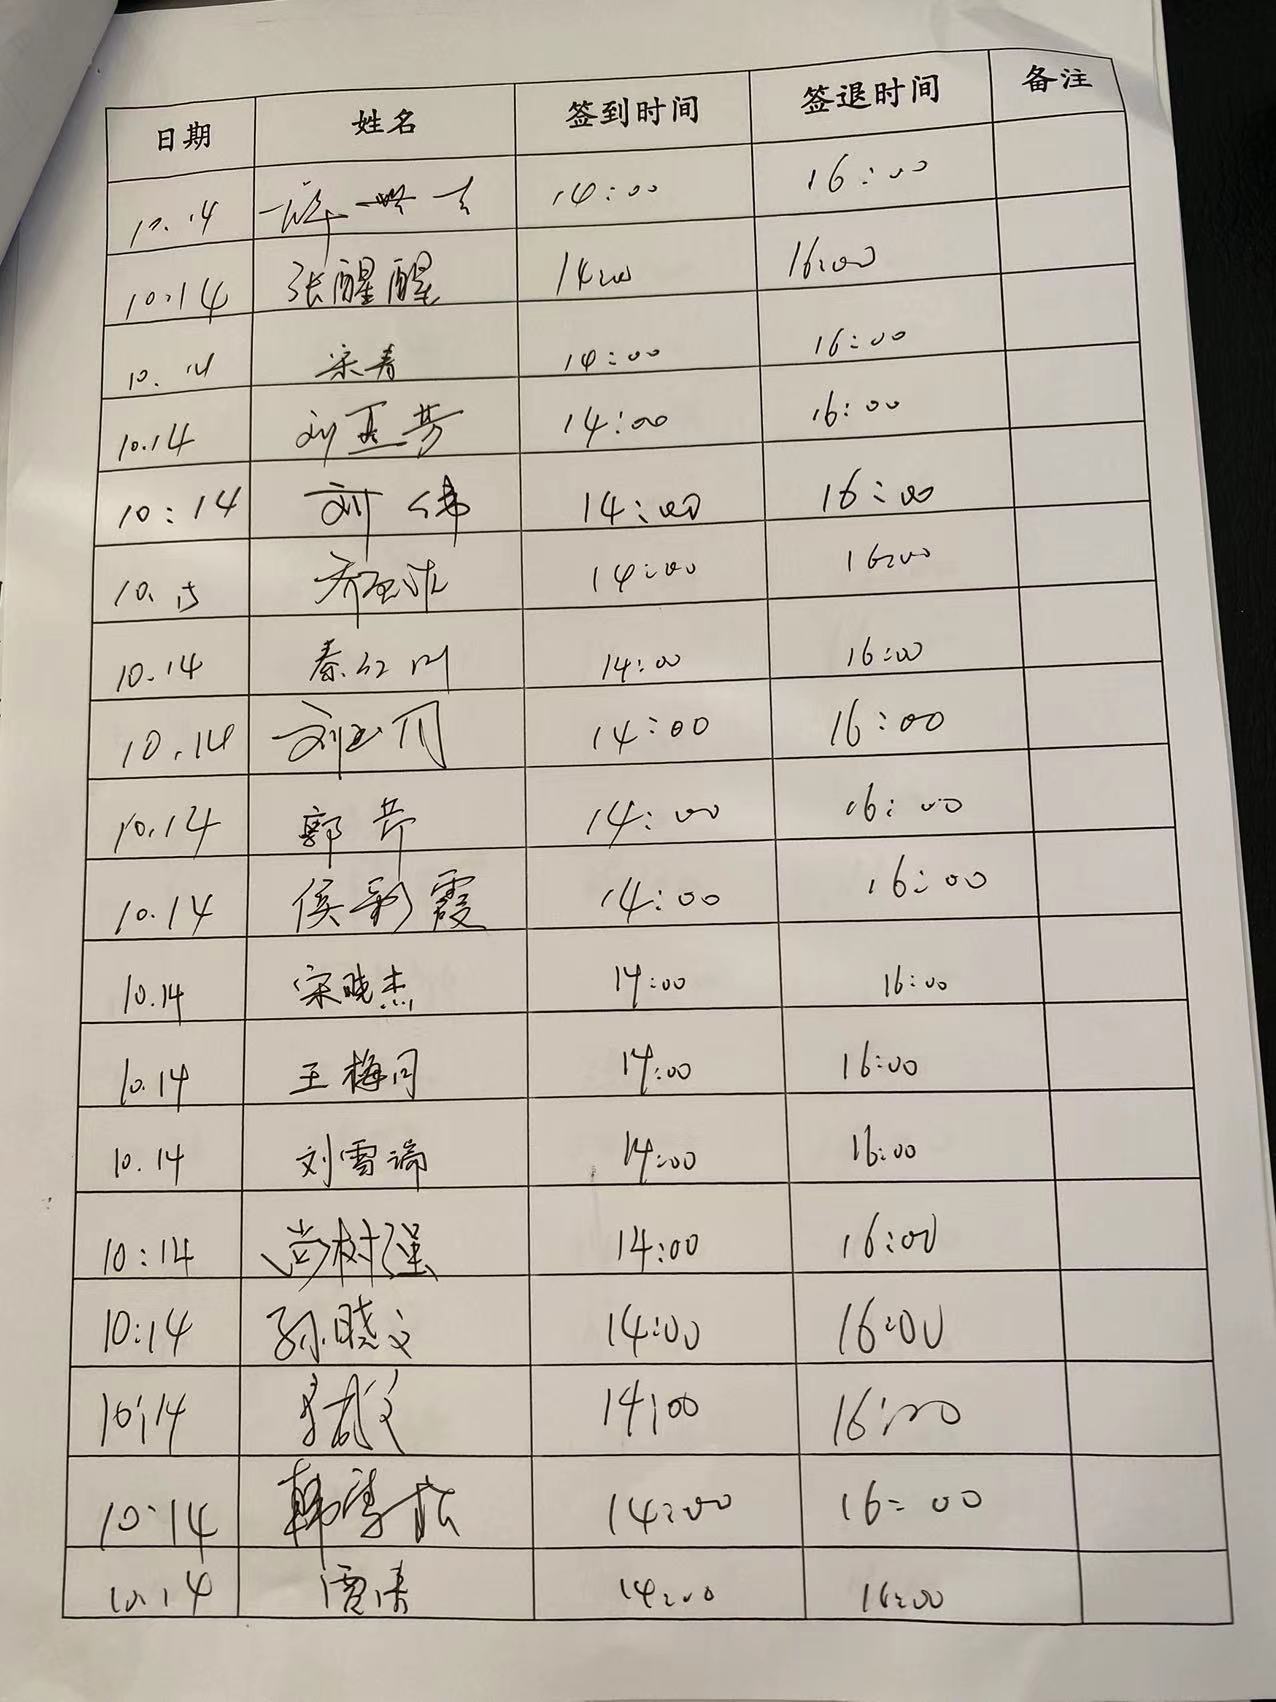 日期 姓名 签到时间 签退时间 备注
10.14 14:00 16:00
10.14 张醒醒 14:00 16:00
10.14 宋青 14:00 16:00
10.14 刘亚芳 14:00 16:00
10:14 刘伟 14:00 16:00
10. 14:00 16:00
10.14 秦红川 14:00 16:00
10.14 刘 14:00 16:00
10.14 郭芳 14:00 16:00
10.14 侯彩霞 14:00 16:00
10.14 宋晓杰 14:00 16:00
10.14 王梅 14:00 16:00
10.14 刘雪 14:00 16:00
10:14 尚树强 14:00 16:00
10:14 孙晓文 14:00 16:00
10:14 14:00 16:00
10:14 韩 14:00 16:00
10.14 14:00 16:00